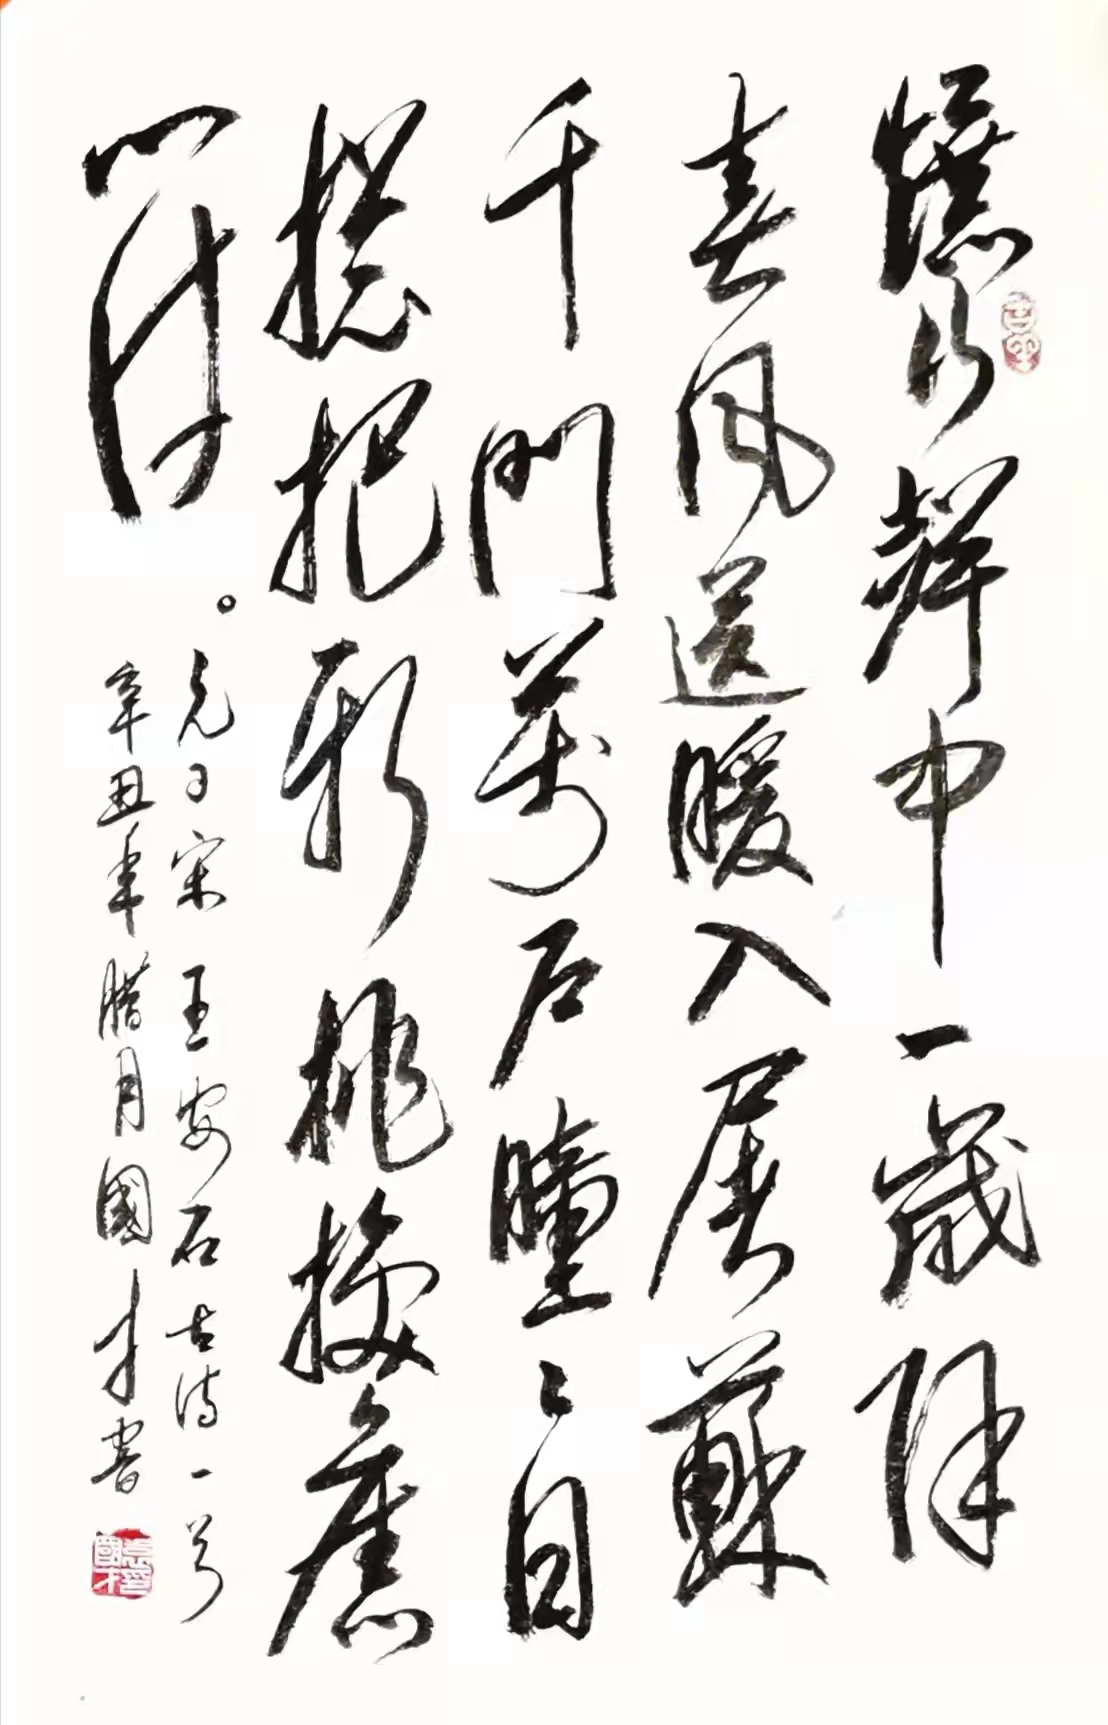 爆竹聲中一歲除
春風送暖入屠蘇
千門萬戶曈〻日
總把新桃換舊
符。
元日宋王安石古诗一首
辛丑年臘月國才書